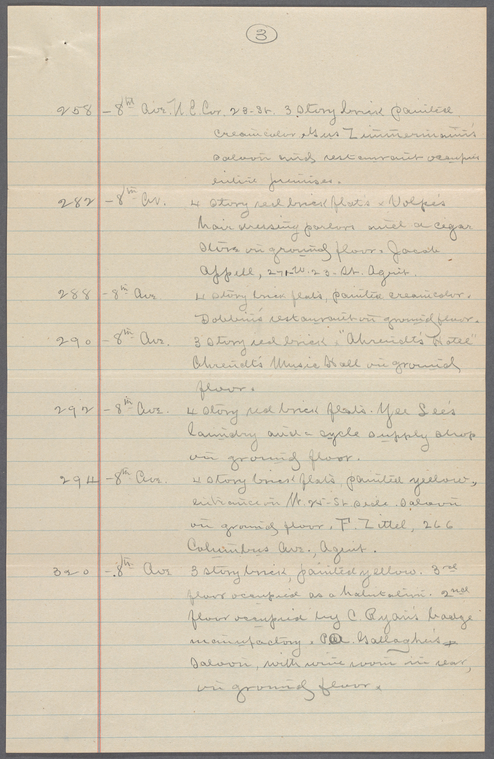 3
258 - 8th Ave. N.E. Cor. 23-St. 3 story brick painted
cream color. Gus Zimmermann's
saloon and restaurant occupies
entire premises.
282 - 8th Av. 4 story red brick flats. Volpe's
hair dressing parlors and a cigar
store on ground floor. Jacob
Appell, 271 W. 23-St. Agent.
288 - 8th Ave 4 story brick flats, painted cream color.
restaurant on ground floor.
290 - 8th Ave. 3 story red brick. "Ahrendt's Hotel"
Ahrendt's Music Hall on ground
floor.
292 - 8th Ave. 4 story red brick flats. Yee Lee's
laundry and a cycle supply shop
on ground floor.
294 - 8th Ave. 4 story brick flats, painted yellow,
entrance on W. 25-St side. Saloon
on ground floor. F. Zittel, 266
Columbus Ave., Agent.
320 - 8th Ave 3 story brick, painted yellow. 3rd
floor occupied as a habitation. 2nd
floor occupied by C. Ryan's badge
manufactory. Gallagher's
saloon, with wine room in rear,
on ground floor.